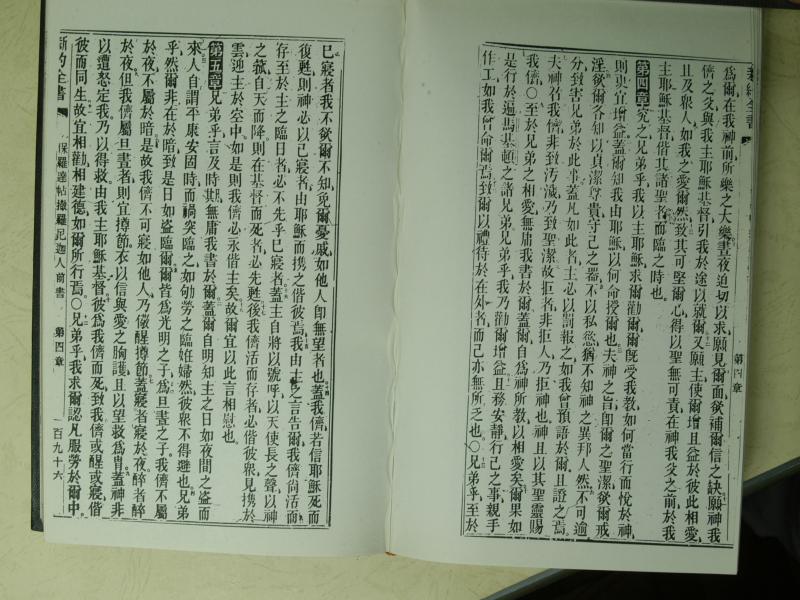 新約全書 第四章
爲爾在我神前所樂之大樂晝夜迫切以求願見爾面欲補爾信之缺願神我
儕之父與我主耶穌基督引我於途以就爾又願主使爾增且益於彼此相愛
且及衆人如我之愛爾然致其可堅爾心得以聖無可責在神我父之前於我
主耶穌基督偕其諸聖者而臨之時也
第四章究之兄弟乎我以主耶穌求爾勸爾爾旣受我教如何當行而悅於神
則更宜增益蓋爾知我由耶穌以何命授爾也夫神之旨卽爾之聖潔欲爾戒
淫欲爾各知以貞潔尊貴守己之器不以私慾猶不知神之異邦人然不可逾
分致害兄弟於此事蓋凡如此者主必以罰報之如我曾預語於爾且證之焉
夫神召我儕非致汚濊乃致聖潔故拒者非拒人乃拒神也神且以其聖靈賜
我儕○至於兄弟之相愛無庸我書於爾蓋爾自爲神所教以相愛矣爾果如
是行於遍馬基頓之諸兄弟兄弟乎我乃勸爾增益且務安靜行己之事親手
作工如我曾命爾焉致爾以禮待於在外者而己亦無所乏也○兄弟乎至於
已寢者我不欲爾不知免爾憂戚如他人卽無望者也蓋我儕若信耶穌死而
復甦則神必以已寢者由耶穌而携之偕彼焉我由主之言告爾我儕尚活而
存至於主之臨日者必不先乎已寢者蓋主自將以號呼以天使長之聲以神
之箛自天而降則在基督而死者必先甦後我儕活而存者必偕彼衆見携於
雲迎主於空中如是則我儕必永偕主矣故爾宜以此言相慰也
第五章兄弟乎言及時其無庸我書於爾蓋爾自明知主之日如夜間之盜而
來人自謂平康安固時而禍突臨之如劬勞之臨姙婦然彼衆不得避也兄弟
乎然爾非在於暗致是日如盜臨爾爾皆爲光明之子爲旦晝之子我儕不屬
於夜不屬於暗是故我儕不可寢如他人乃儆醒撙節蓋寢者寢於夜醉者醉
於夜但我儕屬旦晝者則宜撙節衣以信與愛之胸護且以望救爲胄蓋神非
以遭怒定我乃以得救由我主耶穌基督彼爲我儕而死致我儕或醒或寢偕
彼而同生故宜相勸相建德如爾所行焉○兄弟乎我求爾認凡服勞於爾中
新約全書 保羅達帖撒羅尼迦人前書 第四章 百九十六